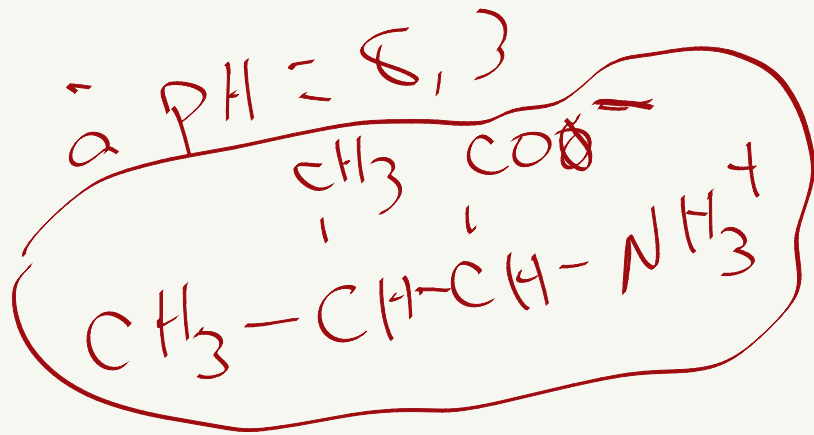 à pH = 8,3
CH3 COO−
CH3 — CH — CH — NH3+